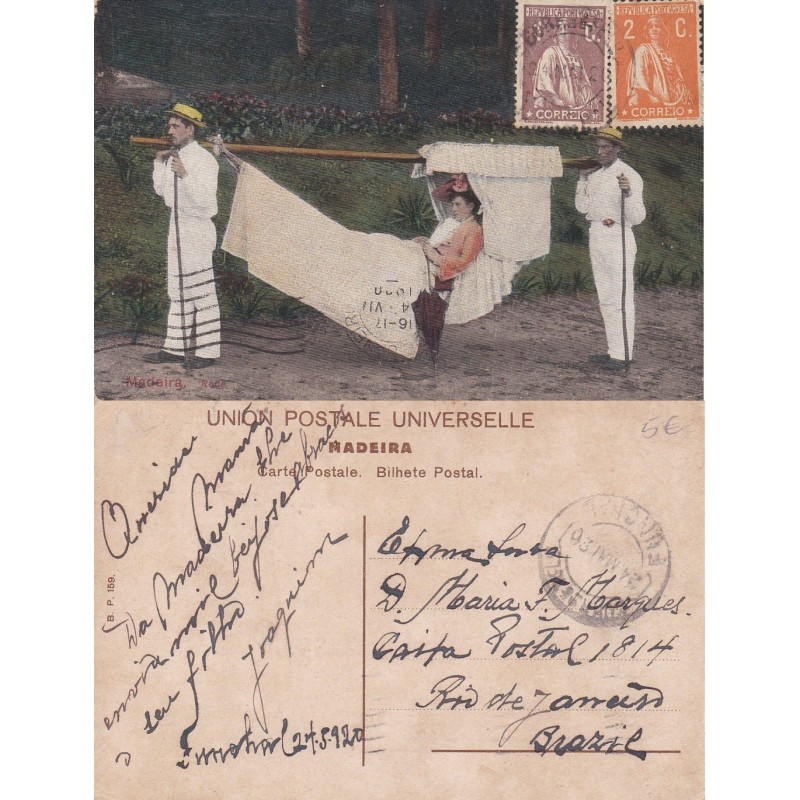 REPUBLICA PORTUGUESA
C.
CORREIO
REPUBLICA PORTUGUESA
2 C.
CORREIO
16-17
Madeira, Rede
UNION POSTALE UNIVERSELLE
MADEIRA
Carte Postale. Bilhete Postal.
5€
B. P. 159.
Querida Mamã
Da Madeira lhe
envia mil beijos e abraços
o seu filho
Joaquim
Funchal 24.5.920
FUNCHAL
24 MAI 20
Exma Snra
D. Maria F. Marques.
Caixa Postal 1814
Rio de Janeiro
Brazil